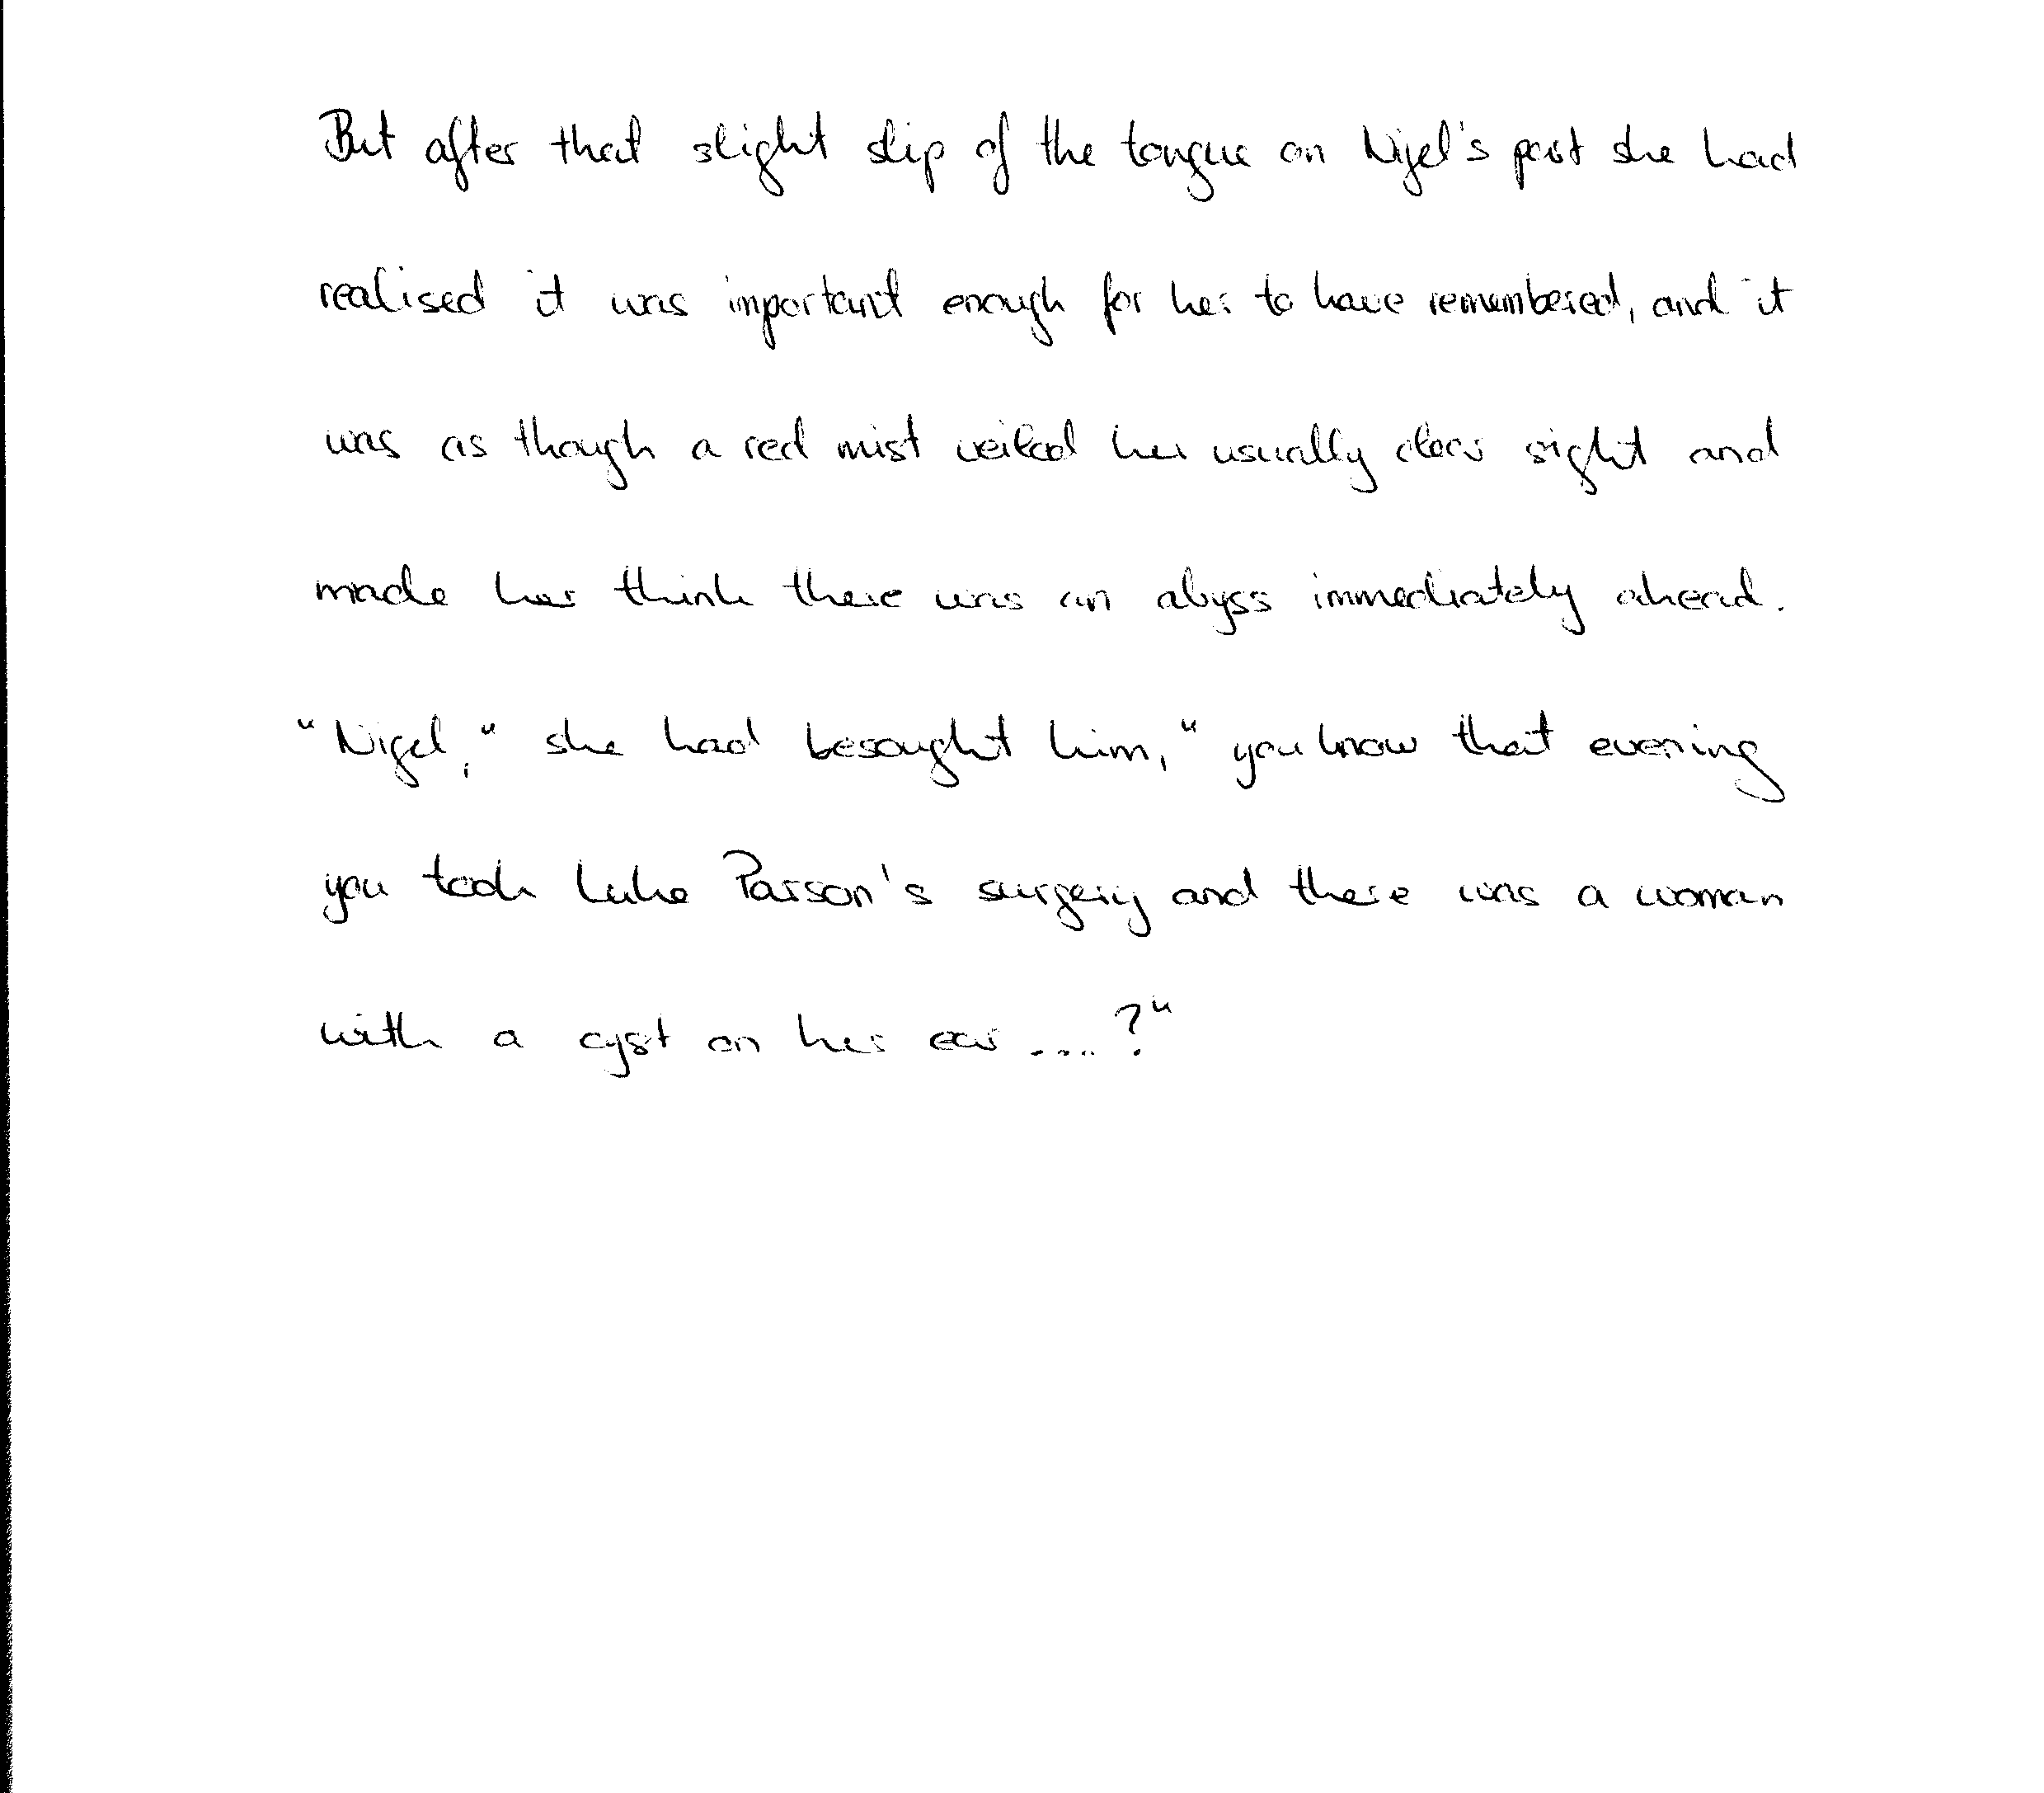 But after that slight slip of the tongue on Nigel's part she had
realised it was important enough for her to have remembered, and it
was as though a red mist veiled her usually clear sight and
made her think there was an abyss immediately ahead.
"Nigel," she had besought him, "you know that evening
you took Luke Parson's surgery and there was a woman
with a cyst on her ear ....?"